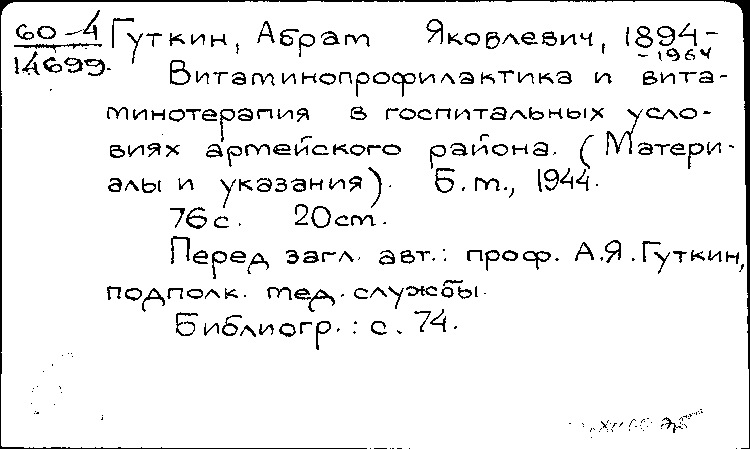 60-4 Гуткин, Абрам Яковлевич, 1894-
14699. -1964
Витаминопрофилактика и вита-
минотерапия в госпитальных усло-
виях армейского района. (Матери-
алы и указания). Б.м., 1944.
76 с. 20 см.
Перед загл. авт.: проф. А.Я. Гуткин,
подполк. мед. службы.
Библиогр.: с. 74.